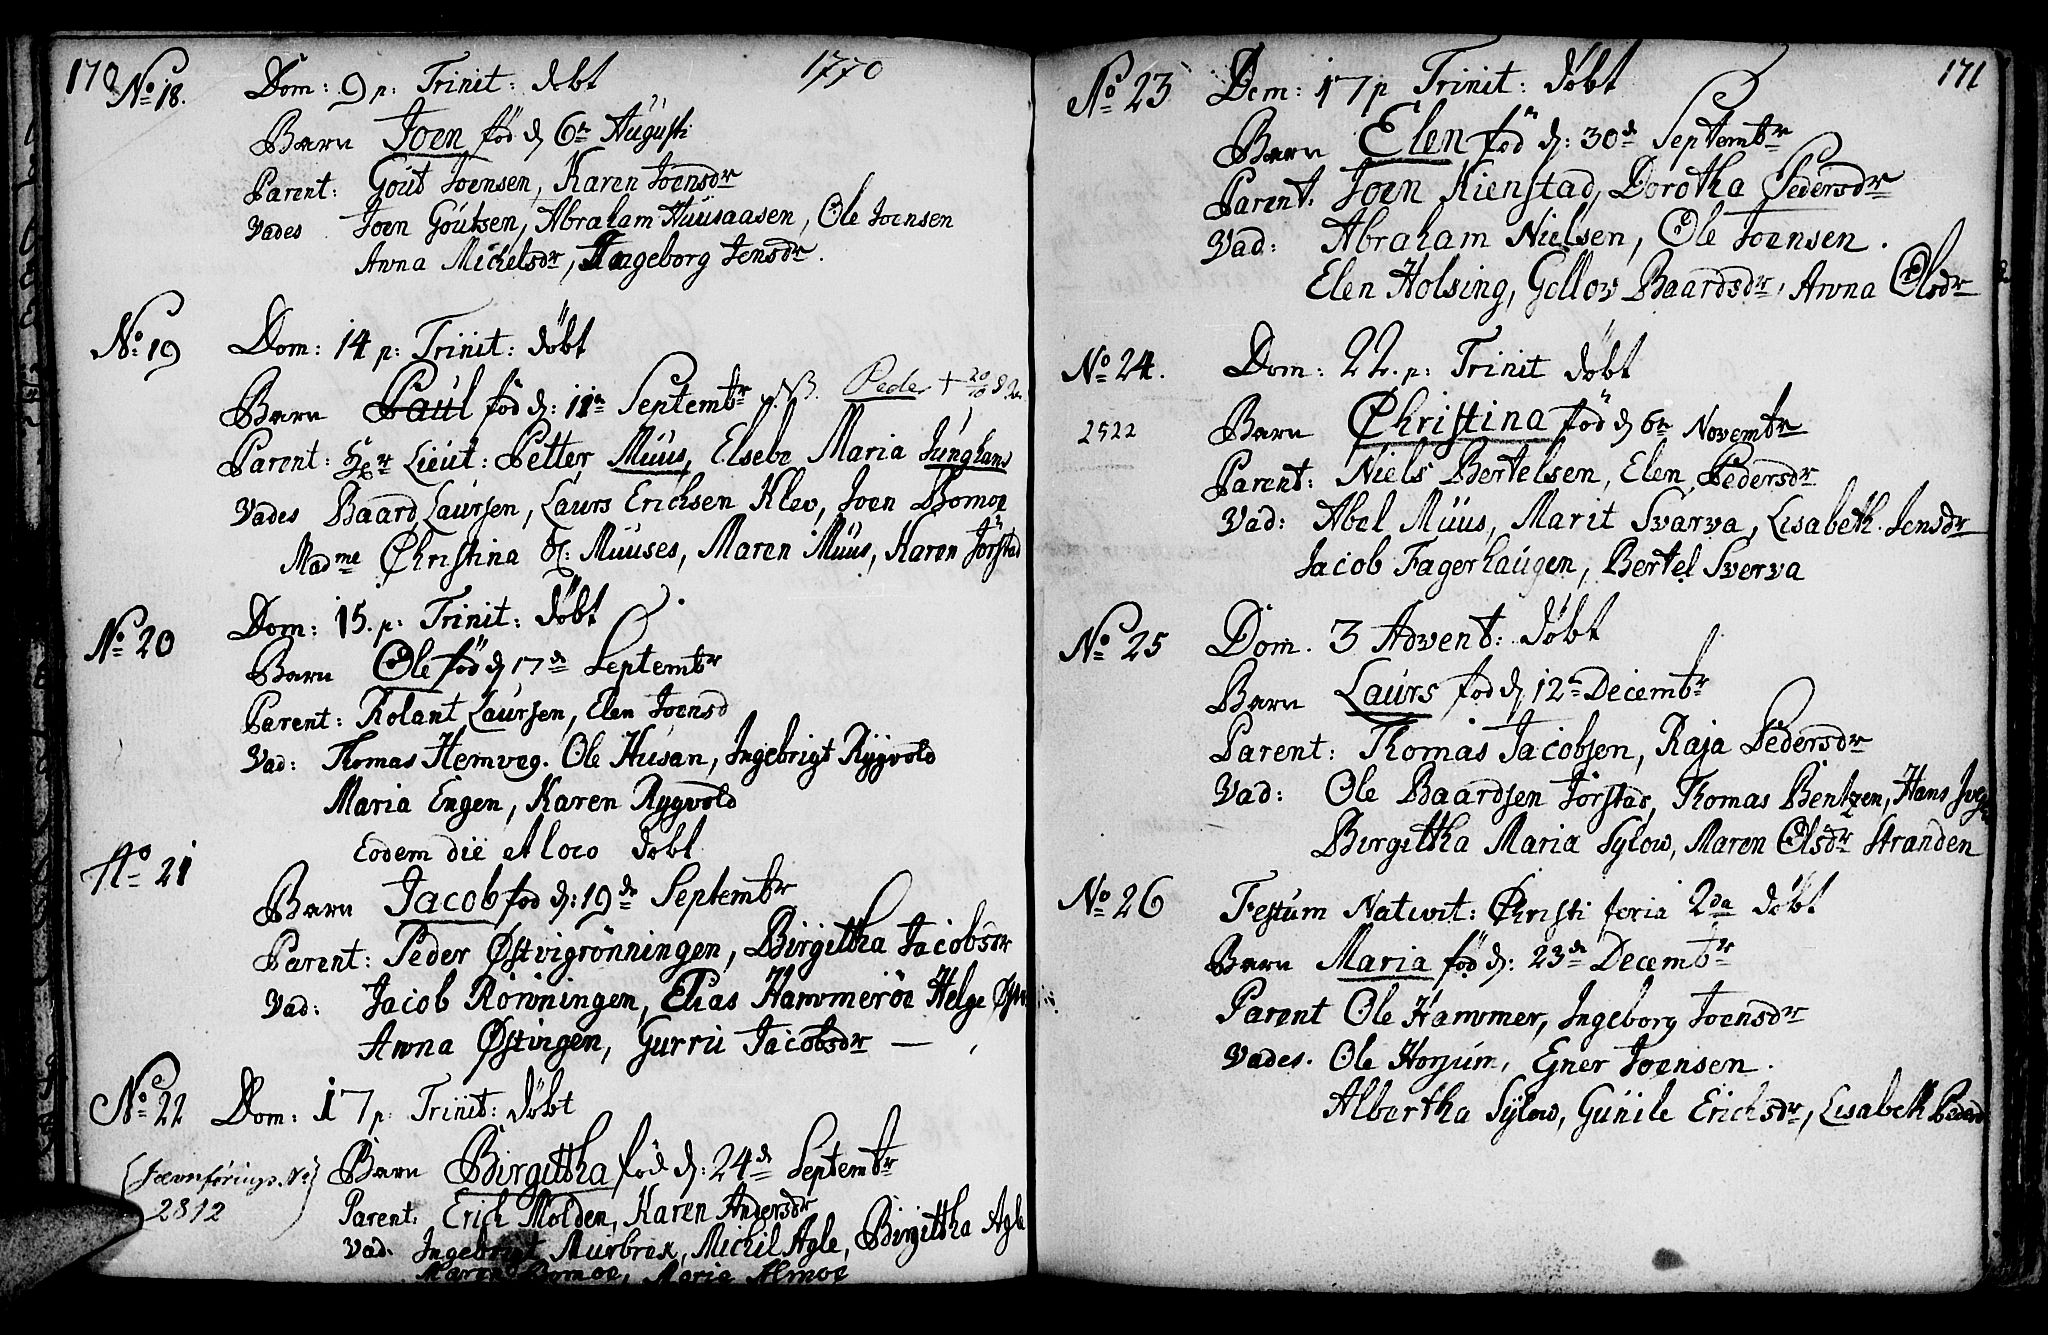 170
1770
No 18. Dom: 9 p: Trinit: døbt
Barn Joen fød d 6te Augusti
Parent: Gout Joensen, Karen Joensdr
Vades Joen Goutsen, Abraham Huusaasen, Ole Joensen
Anna Michelsdr, Ingeborg Jensdr.
No 19 Dom: 14 p: Trinit: døbt
Barn Paul fød d: 11te Septembr Peder + 20/10
Parent: Hr Lieut: Petter Muus, Elsebe Maria Junghans
Vades Baard Laursen, Laurs Erichsen Klev, Joen Bomoe
Madme Christina Muuses, Maren Muus, Karen Jørstad
No 20 Dom: 15. p: Trinit: døbt
Barn Ole fød d 17de Septembr
Parent: Rolant Laursen, Elen Joensd
Vad: Thomas Hemveg. Ole Husan, Ingebrigt Rygvold
Maria Engen, Karen Rygvold
No 21 Eodem die et loco døbt
Barn Jacob fød d: 19de Septembr
Parent: Peder Østvigrønningen, Birgittha Jacobsdr
Vad: Jacob Rønningen, Elias Hammerøe Helge
Anna Østvigen, Gurru Jacobsdr —
No 22 Dom: 17 p: Trinit: døbt
(Jævnførings No 2812) Barn Birgittha fød d: 24de Septembr
Parent: Erich Molden, Karen Andersdr
Vad. Ingebrigt Murbrek, Michil Agle, Birgittha Agle
Maren Bomoe, Maria Almoe
171
No 23 Dom: 17 p Trinit: døbt
Barn Elen fød d: 30de Septembr
Parent: Joen Kienstad, Dorotha Pedersdr
Vad: Abraham Nielsen, Ole Joensen.
Elen Holsing, Gollov Baardsdr, Anna Olsdr
No 24. Dom: 22. p: Trinit døbt
2522 Barn Christina fød d 6te Novembr
Parent: Niels Bertelsen, Elen Pedersdr
Vad: Abel Muus, Marit Svarva, Lisabeth Jensdr
Jacob Fagerhaugen, Bertel Sverva
No 25 Dom. 3 Advent: døbt
Barn Laurs fød d 12te Decembr
Parent: Thomas Jacobsen, Raja Pedersdr
Vad: Ole Baardsen Jørstad, Thomas Bentzen, Hans
Birgittha Maria Sylow, Maren Olsdr Stranden
No 26 Festum Nativit: Christi feria 2da døbt
Barn Maria fød d: 23de Decembr
Parent Ole Hammer, Ingeborg Joensdr
Vades. Ole Horjum, Egner Joensen.
Albertha Sylow, Gunile Erichsdr, Lisabeth